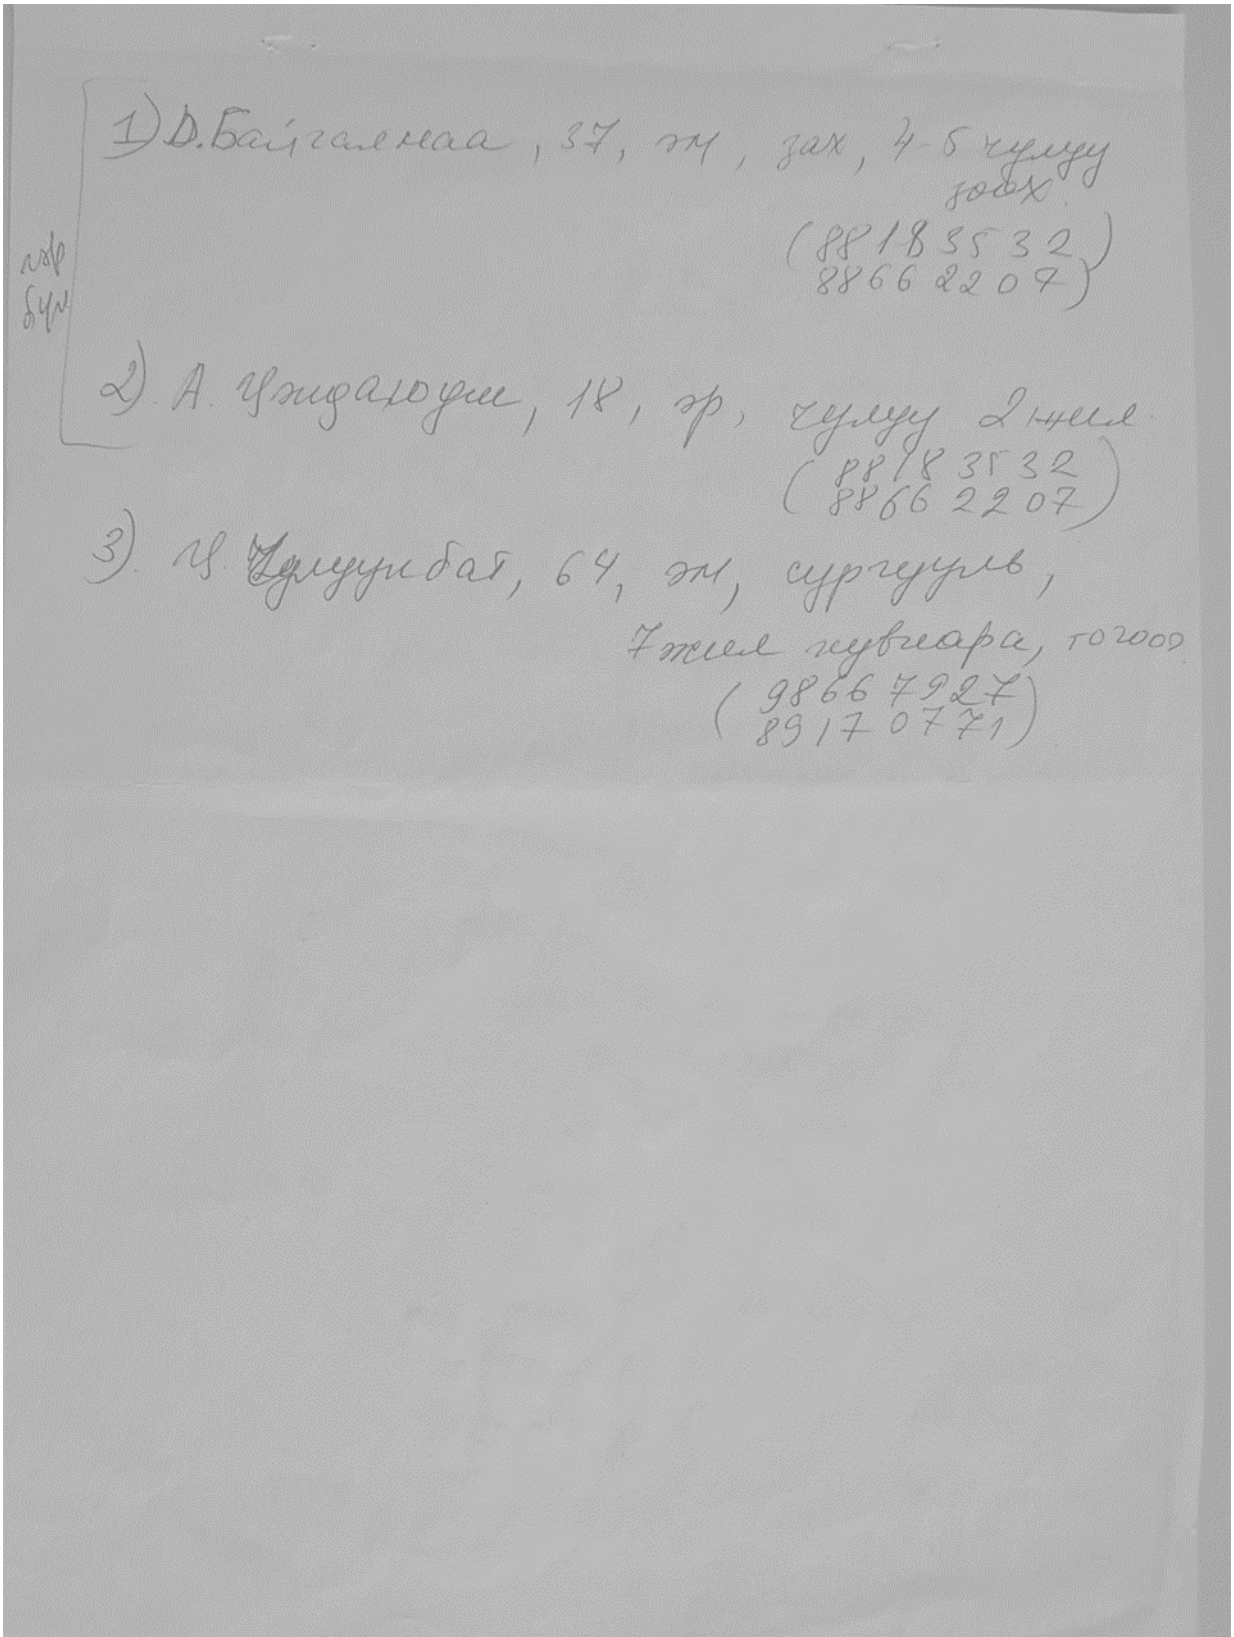 1) D. Байгалмаа, 37, эм, зах, 4-5 чулуу
зоох.
(88183532)
88662207)
гэр
бүл
2). А. Үндахоүм, 18, эр, чулуу 2 жил
(88183532
88662207)
3). Ц. Чулуунбат, 64, эм, сургууль,
7 жил нувчара, тогооч
(98667927
89170771)